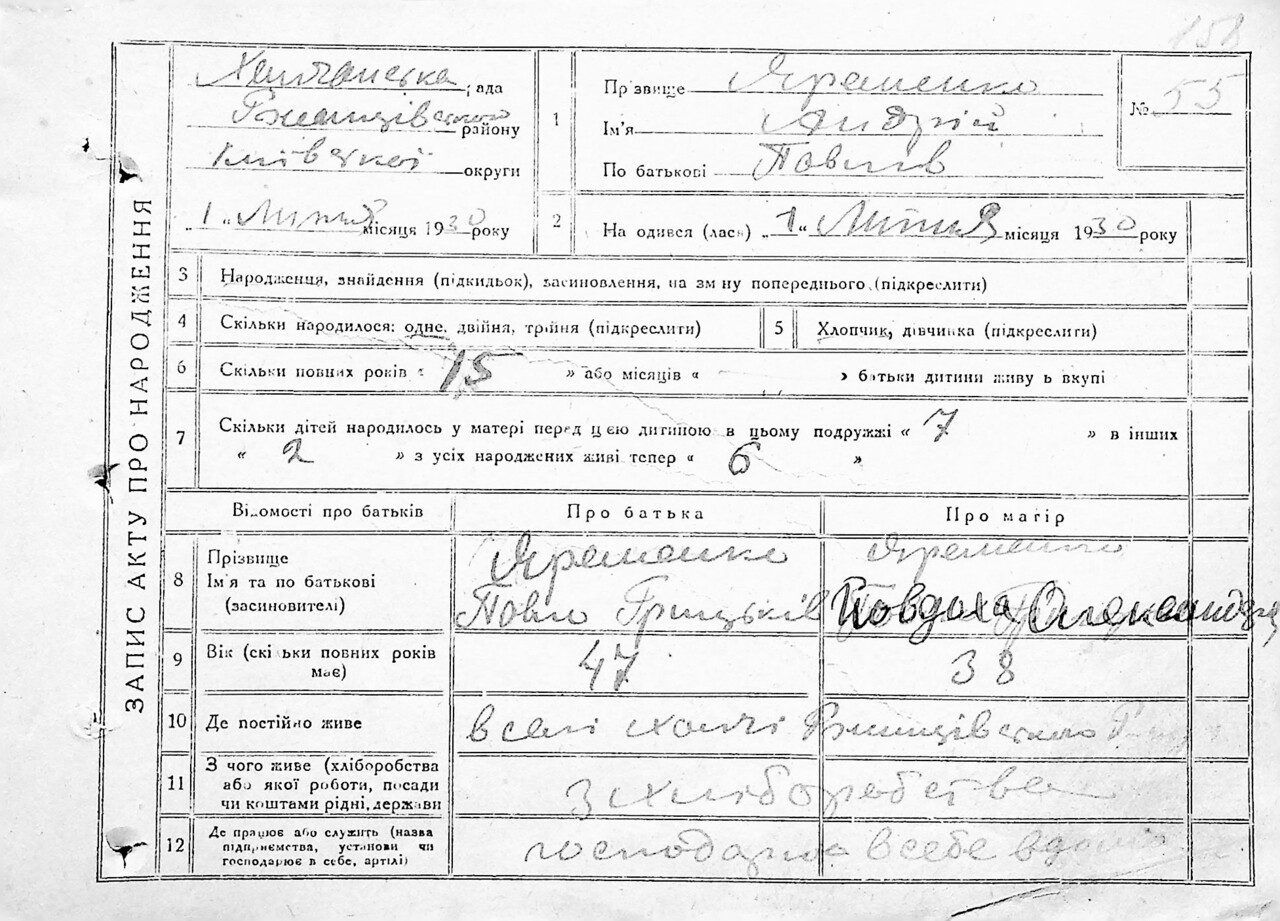 158
ЗАПИС АКТУ ПРО НАРОДЖЕННЯ
рада
Ржищівського району
Київської округи
„1“ Липня місяця 1930 року
1 Прізвище Яременко
Ім'я Андрій
По батькові Павлів
№ 55
2 На одився (лась) „1“ Липня місяця 1930 року
3 Народження, знайдення (підкидьок), засиновлення, на зм ну попереднього (підкреслити)
4 Скільки народилося: одне, двійня, трійня (підкреслити)
5 Хлопчик, дівчинка (підкреслити)
6 Скільки повних років « 15 » або місяців « » батьки дитини живу ь вкупі
7 Скільки дітей народилось у матері перед цією дитиною в цьому подружжі « 7 » в інших
« 2 » з усіх народжених живі тепер « 6 »
Відомості про батьків Про батька Про матір
8 Прізвище
Ім'я та по батькові
(засиновителі)
Яременко
Павло Грицьків
Яременко
Явдоха Олександр
9 Вік (скі ьки повних років
має)
47
38
10 Де постійно живе
в селі Ржищівського
11 З чого живе (хліборобства
або якої роботи, посади
чи коштами рідні, держави
З хліборобства
12 Де працює або служить (назва
підприємства, установи чи
господарює в себе, артілі)
господарює в себе вдома